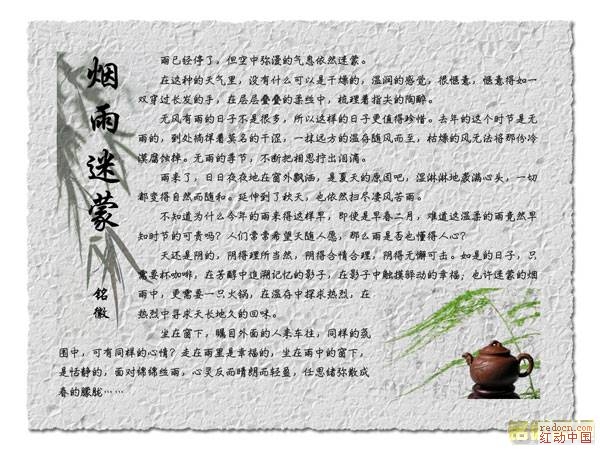 烟雨迷蒙
铭徽
雨已经停了，但空中弥漫的气息依然迷蒙。
在这种的天气里，没有什么可以是干燥的，温润的感觉，很惬意，惬意得如一
双穿过长发的手，在层层叠叠的柔丝中，梳理着指尖的陶醉。
无风有雨的日子不是很多，所以这样的日子更值得珍惜。去年的这个时节是无
雨的，到处徜徉着莫名的干涩，一抹远方的温存随风而至，枯燥的风无法将那份冷
漠腐蚀掉。无雨的季节，不断把相思拧出泪滴。
雨来了，日日夜夜地在窗外飘洒，是夏天的原因吧，湿淋淋地蓑满心头，一切
都变得自然而随和。延伸到了秋天，也依然扫尽凄风苦雨。
不知道为什么今年的雨来得这样早，即使是早春二月，难道这温柔的雨竟然早
知时节的可贵吗？人们常常希望天随人愿，那么雨是否也懂得人心？
天还是阴的，阴得理所当然，阴得合情合理，阴得无懈可击。如是的日子，只
需要杯咖啡，在芳醇中追溯记忆的影子，在影子中触摸骚动的幸福，也许迷蒙的烟
雨中，更需要一只火锅，在温存中探求热烈，在
热烈中寻求天长地久的回味。
坐在窗下，瞩目外面的人来车往，同样的氛
围中，可有同样的心情？走在雨里是幸福的，坐在雨中的窗下，
是恬静的，面对绵绵丝雨，心灵反而晴朗而轻盈，任思绪弥散成
春的朦胧……
redocn.com
红动中国